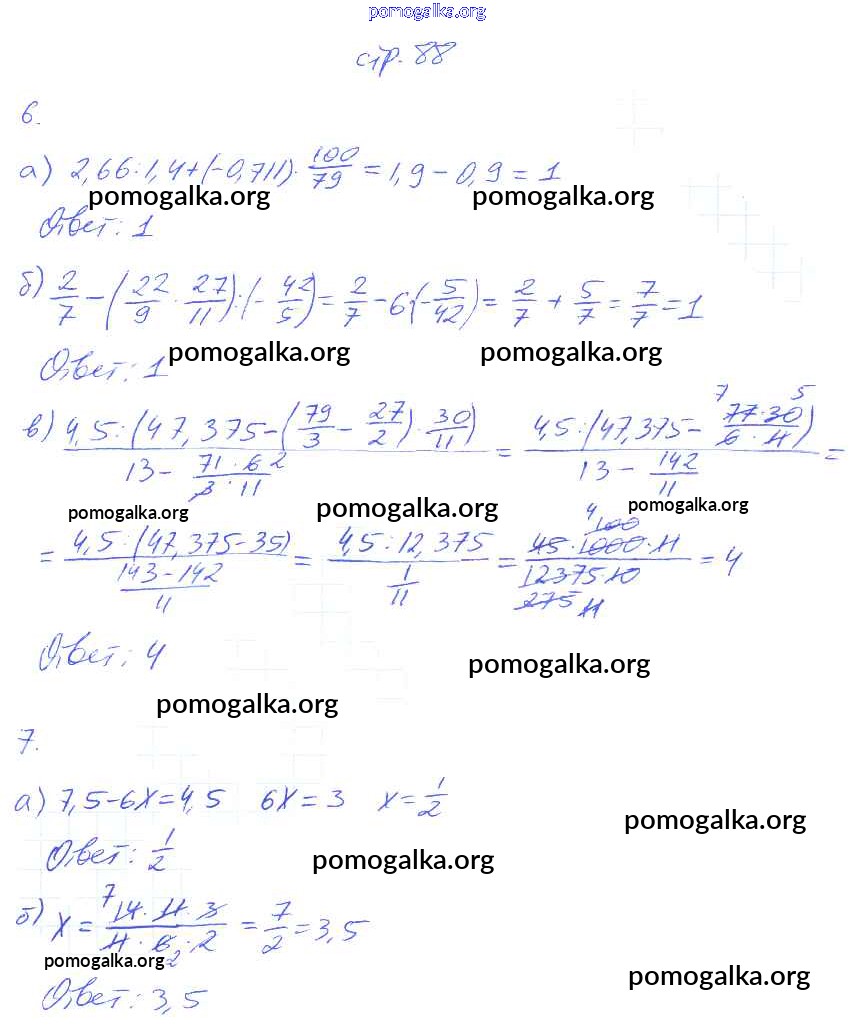 pomogalka.org
стр. 88
6.
а) 2,66:1,4+(-0,711)·100/79 = 1,9 - 0,9 = 1
pomogalka.org pomogalka.org
Ответ: 1
б) 2/7 - (22/9 · 27/11):(-42/5) = 2/7 - 6(-5/42) = 2/7 + 5/7 = 7/7 = 1
pomogalka.org pomogalka.org
Ответ: 1
в) 4,5:(47,375-(79/3 - 27/2)·30/11) / (13 - 71·6 2/3·11) = 4,5:(47,375 - 7 5 77·30/6·11) / (13 - 142/11) =
pomogalka.org pomogalka.org pomogalka.org
= 4,5:(47,375-35) / (143-142/11) = 4,5:12,375 / (1/11) = 4 100 45·1000·11 / 12375·10 275 11 = 4
Ответ: 4
pomogalka.org
pomogalka.org
7.
а) 7,5-6x=4,5 6x=3 x=1/2
pomogalka.org
Ответ: 1/2
pomogalka.org
б) x = 7 14·11·3 / 11·6·2 2 = 7/2 = 3,5
pomogalka.org
pomogalka.org
Ответ: 3,5